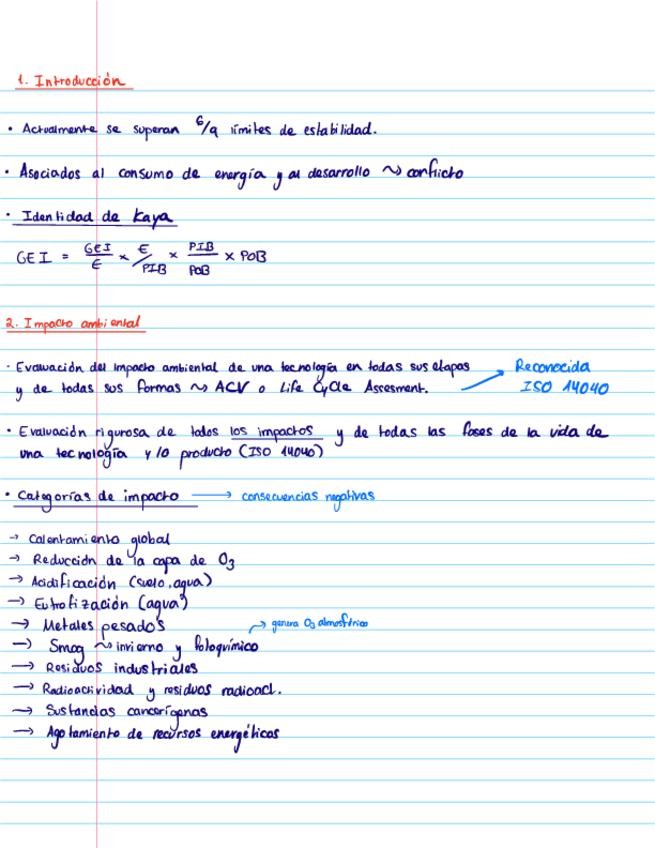 1. Introducción
• Actualmente se superan 6/9 límites de estabilidad.
• Asociados al consumo de energía y al desarrollo ~> conflicto
• Identidad de Kaya
GEI = GEI/E × E/PIB × PIB/POB × POB
2. Impacto ambiental
· Evaluación del impacto ambiental de una tecnología en todas sus etapas
y de todas sus formas ~> ACV o Life Cycle Assesment.
Reconocida
ISO 14040
• Evaluación rigurosa de todos los impactos y de todas las fases de la vida de
una tecnología y/o producto (ISO 14040)
• Categorías de impacto → consecuencias negativas
→ Calentamiento global
→ Reducción de la capa de O3
→ Acidificación (suelo, agua)
→ Eutrofización (agua)
→ Metales pesados
→ genera O3 atmosférico
→ Smog ~> invierno y fotoquímico
→ Residuos industriales
→ Radioactividad y residuos radioact.
→ Sustancias cancerígenas
→ Agotamiento de recursos energéticos